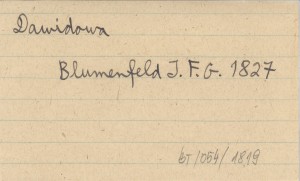 Dawidowa
Blumenfeld J. F. G. 1827
1054/1819